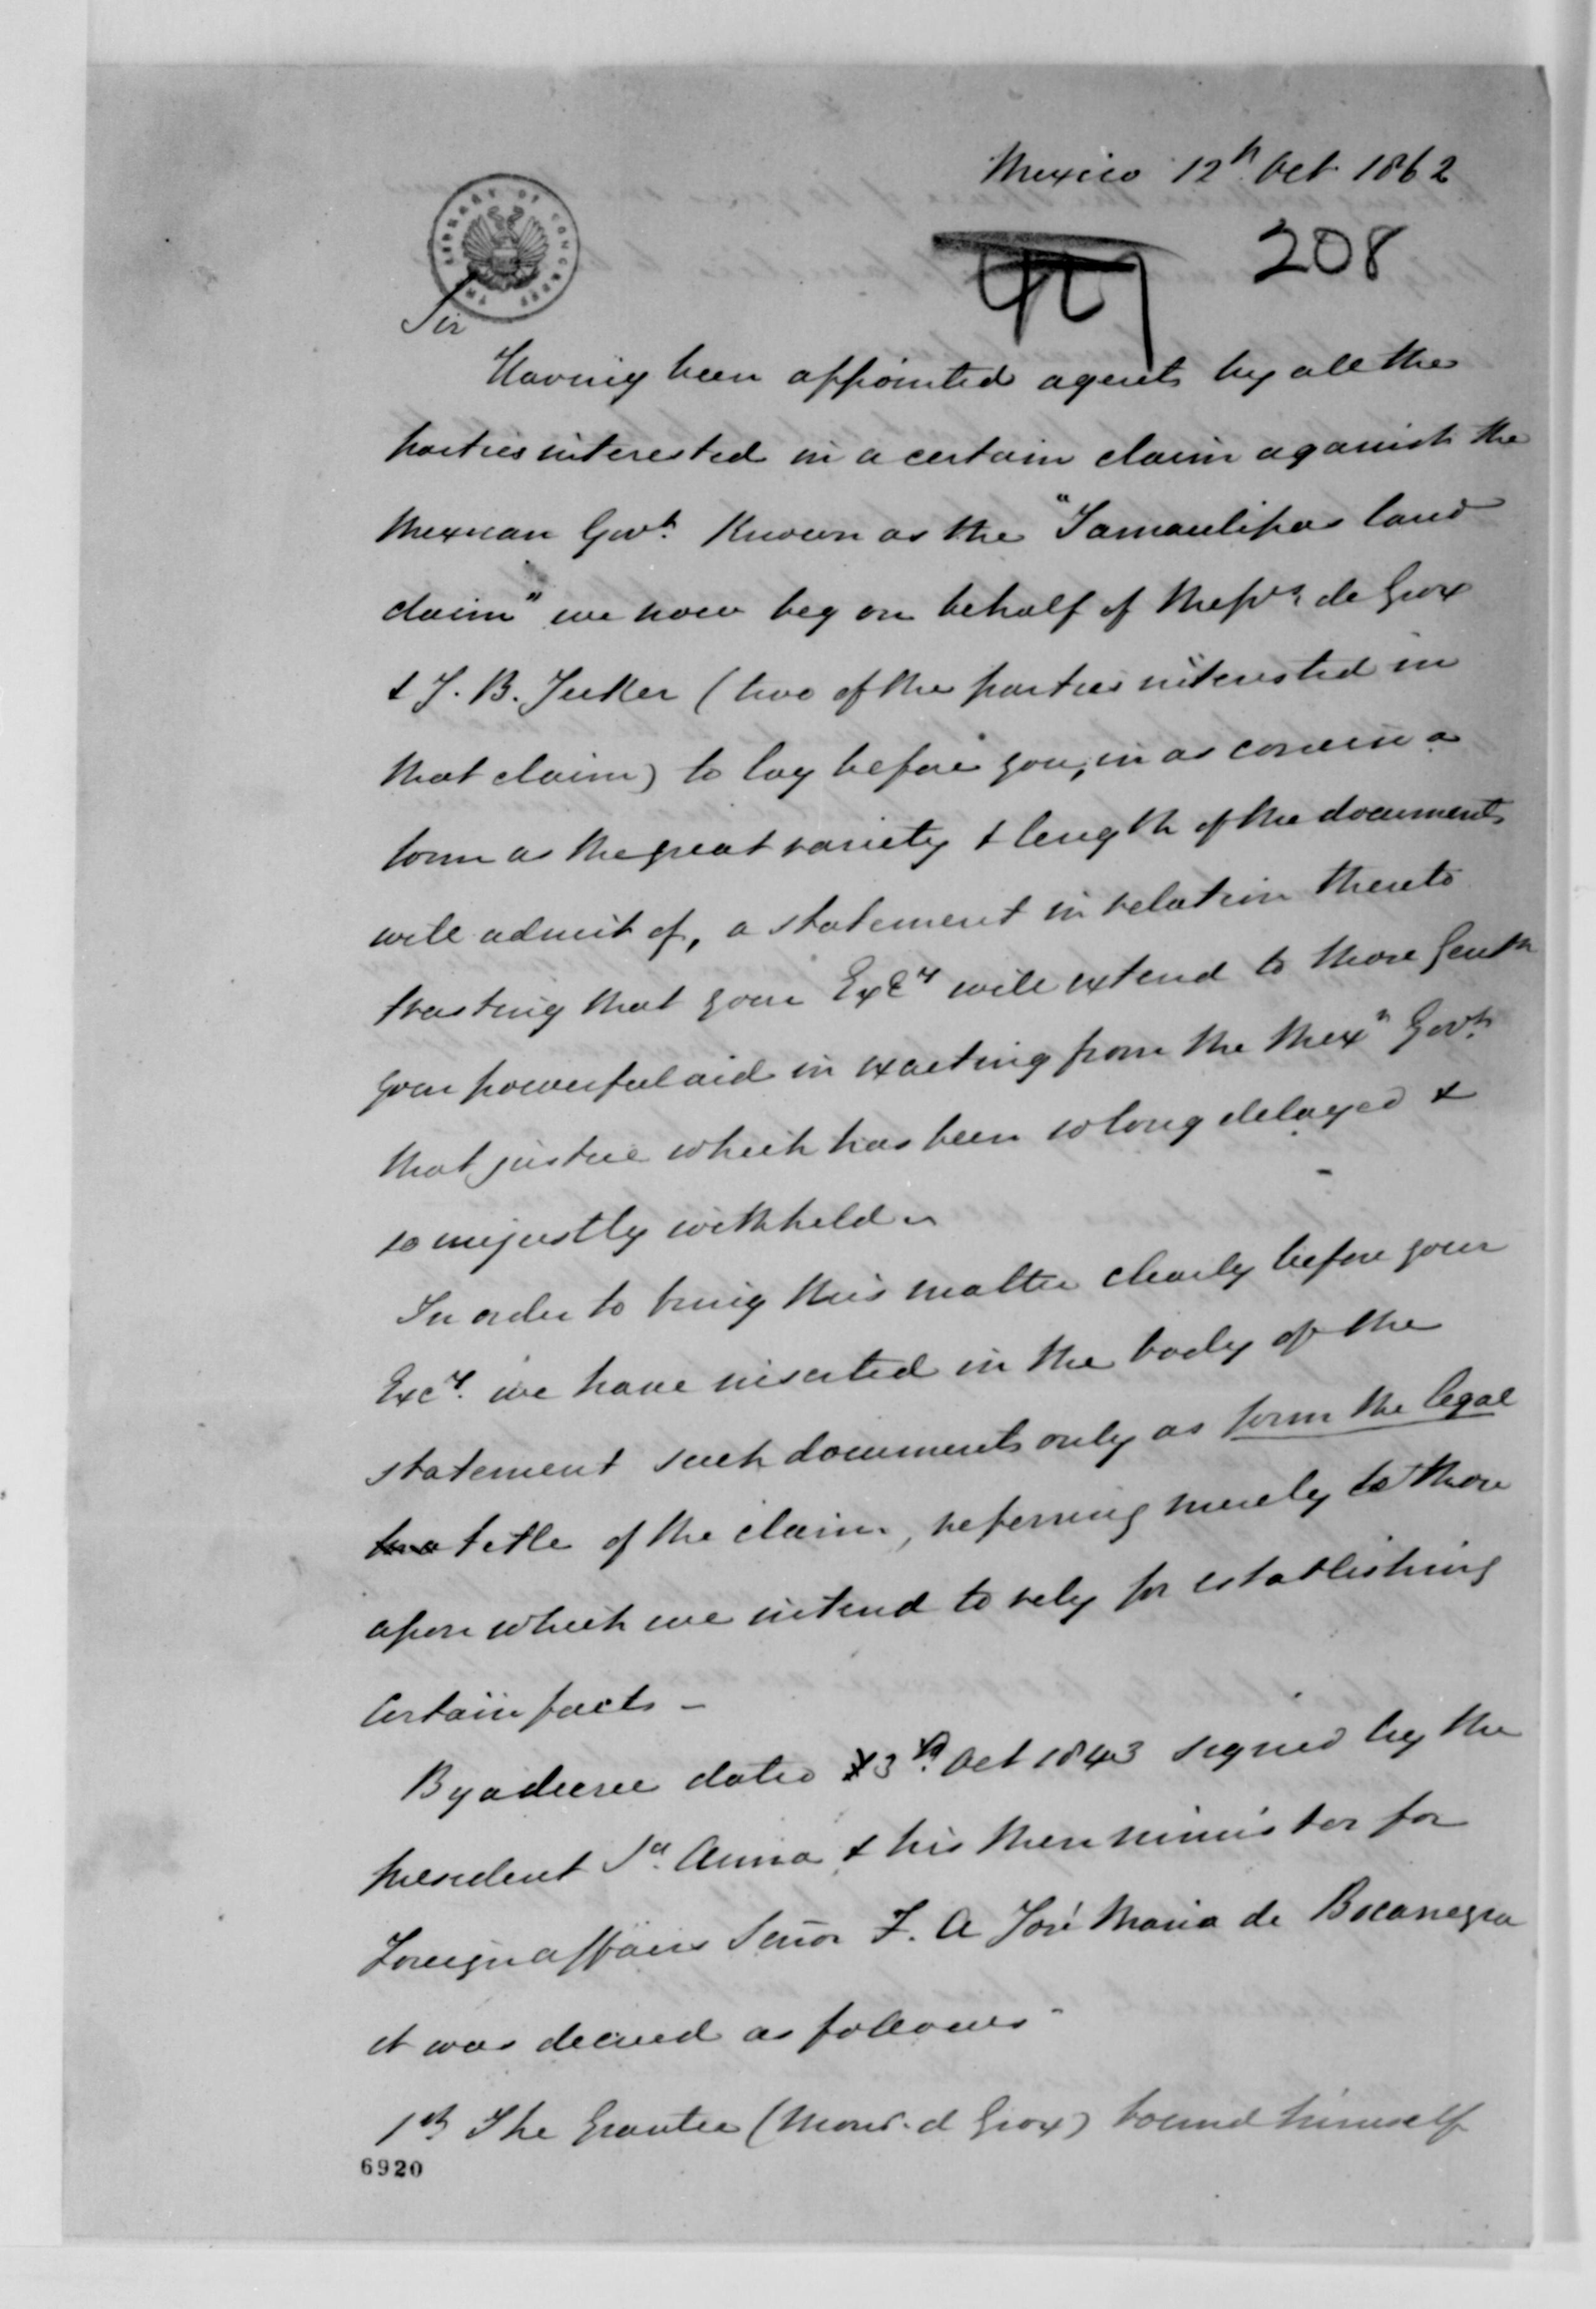 Mexico 12th Oct 1862
208
THE LIBRARY OF CONGRESS
Sir
Having been appointed agents by all the
parties interested in a certain claim against the
Mexican Govt. Known as the "Tamaulipas land
claim" we now beg on behalf of de Grox
& J. B. Jecker (two of the parties interested in
that claim) to lay before you, in as concise a
form as the great variety & length of the documents
will admit of, a statement in relation thereto
trusting that your Excy will extend to those Gentn
your powerful aid in exacting from the Mexn Govt.
that justice which has been so long delayed &
so unjustly withheld -
In order to bring this matter clearly before your
Excy. we have inserted in the body of the
statement such documents only as form the legal
title of the claim, referring merely to those
upon which we intend to rely for establishing
certain facts -
By a decree dated 3d. Oct 1843 signed by the
president Sa. Anna & his then minister for
Foreign affairs Señor F. A José Maria de Bocanegra
it was decreed as follows -
1st The Grantee (Monr. d Grox) bound himself
6920